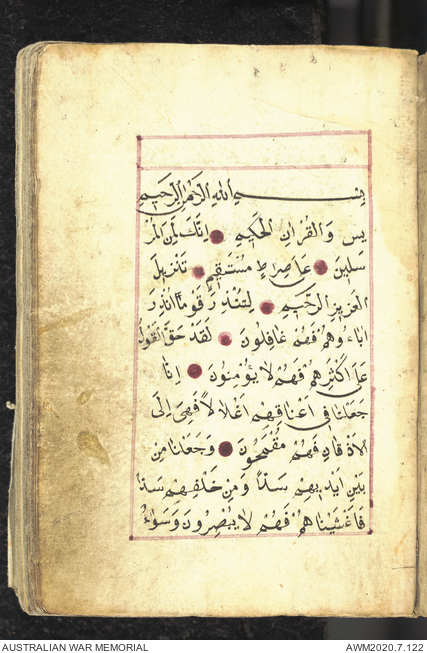 بِسْمِ اللهِ الرَّحْمٰنِ الرَّحِيمِ
يس وَالْقُرْانِ الْحَكِيمِ اِنَّكَ لَمِنَ الْمُرْ
سَلِينَ عَلَى صِرَاطٍ مُسْتَقِيمٍ تَنْزِيلَ
الْعَزِيزِ الرَّحِيمِ لِتُنْذِرَ قَوْمًا مَا اُنْذِرَ
اٰبَاءُوهُمْ فَهُمْ غَافِلُونَ لَقَدْ حَقَّ الْقَوْلُ
عَلَى اَكْثَرِهِمْ فَهُمْ لَا يُؤْمِنُونَ اِنَّا
جَعَلْنَا فِي اَعْنَاقِهِمْ اَغْلَالاً فَهِيَ اِلَى
الْاَذْقَانِ فَهُمْ مُقْمَحُونَ وَجَعَلْنَا مِنْ
بَيْنِ اَيْدِيهِمْ سَدًّا وَمِنْ خَلْفِهِمْ سَدًّا
فَاَغْشَيْنَاهُمْ فَهُمْ لَا يُبْصِرُونَ وَسَوَاءٌ
AUSTRALIAN WAR MEMORIAL
AWM2020.7.122